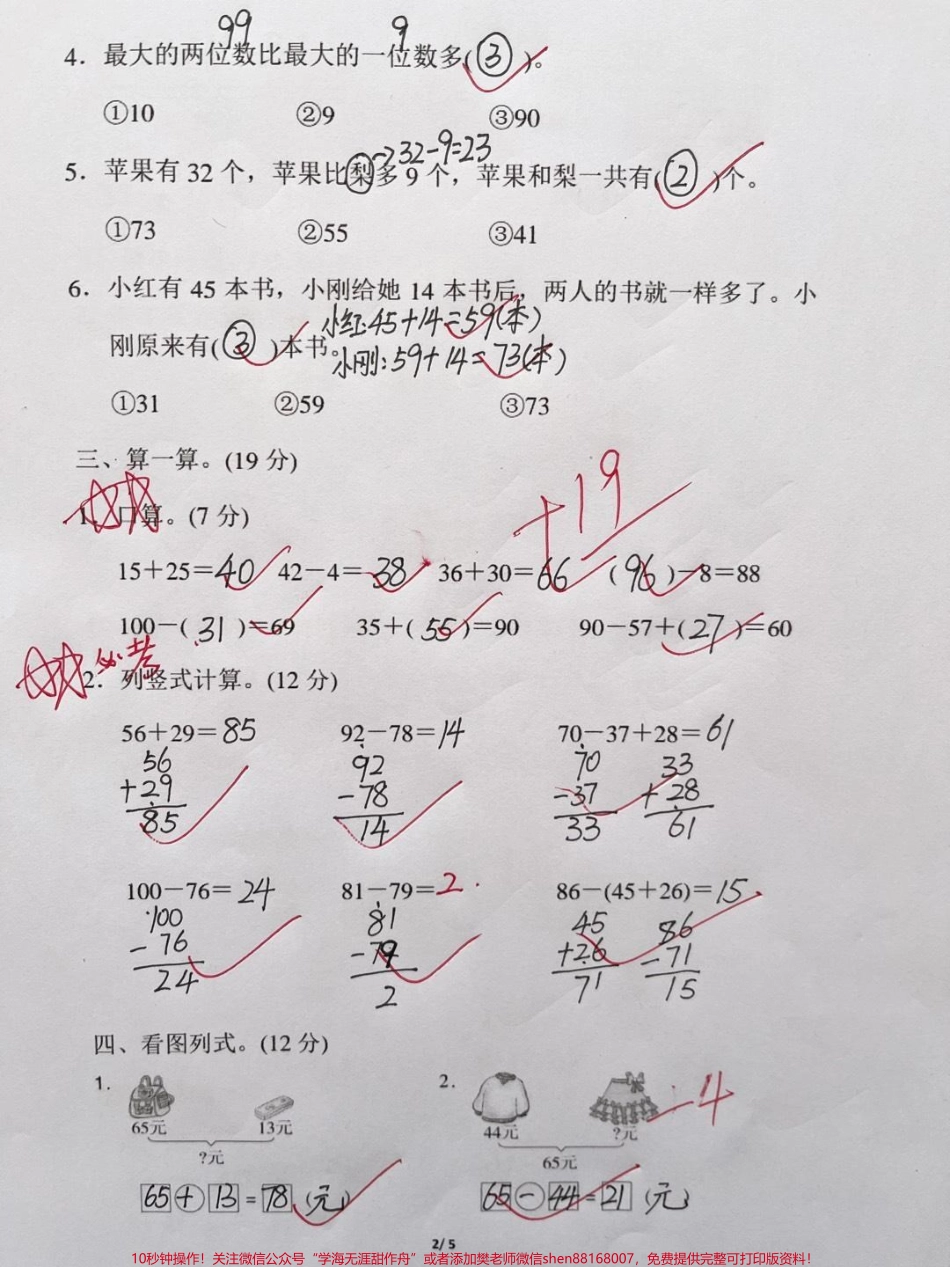 99 9
4. 最大的两位数比最大的一位数多(③)。
①10 ②9 ③90
→32-9=23
5. 苹果有 32 个，苹果比梨多 9 个，苹果和梨一共有(②)个。
①73 ②55 ③41
6. 小红有 45 本书，小刚给她 14 本书后，两人的书就一样多了。小
小红:45+14=59(本)
刚原来有(③)本书。
小刚:59+14=73(本)
①31 ②59 ③73
三、算一算。(19 分)
+19
1. 口算。(7 分)
15+25=40 42-4=38 36+30=66 (96)-8=88
100-(31)=69 35+(55)=90 90-57+(27)=60
必考
2. 列竖式计算。(12 分)
56+29=85 92-78=14 70-37+28=61
56 92 70 33
+29 -78 -37 +28
85 14 33 61
100-76=24 81-79=2 86-(45+26)=15
100 81 45 86
-76 -79 +26 -71
24 2 71 15
四、看图列式。(12 分)
1. 2.
-4
65元 13元 44元 ?元
?元 65元
65+13=78(元) 65-44=21(元)
2/5
10秒钟操作！关注微信公众号“学海无涯甜作舟”或者添加樊老师微信shen88168007，免费提供完整可打印版资料！